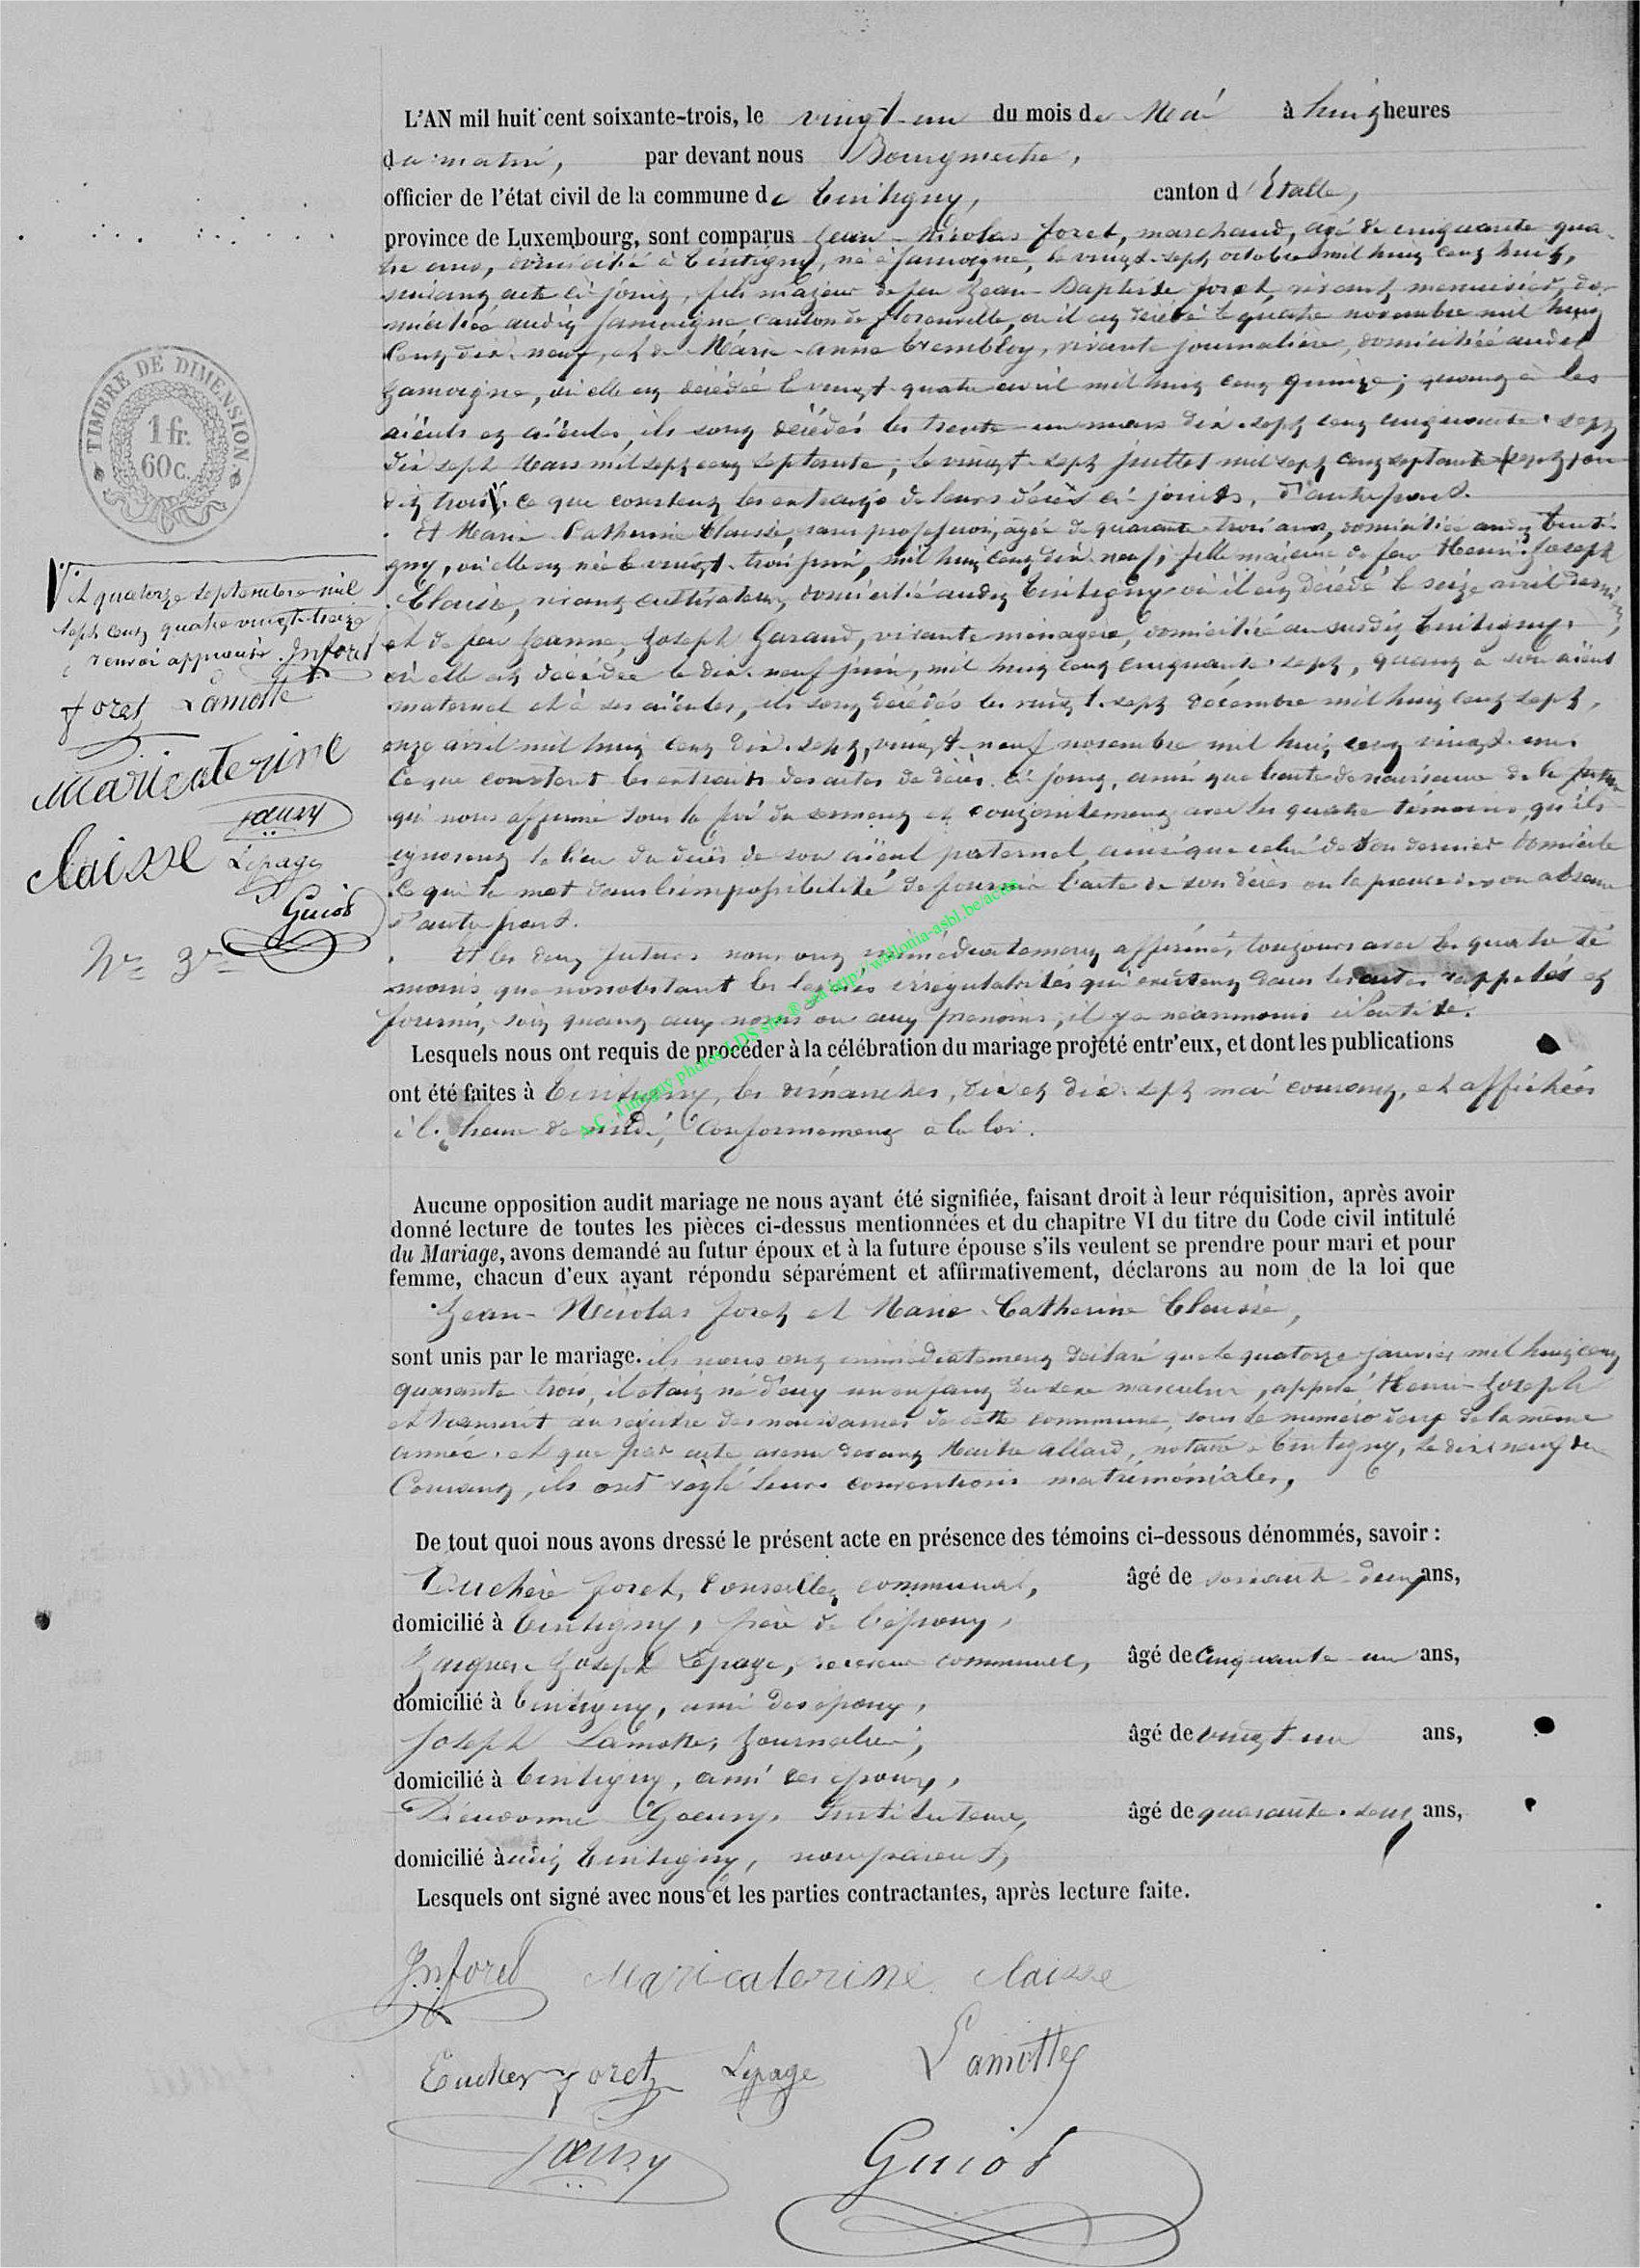 L'AN mil huit cent soixante-trois, le vingt-un du mois de Mai à huit heures
du matin, par devant nous Bourgmestre,
officier de l'état civil de la commune de Tintigny, canton d'Etalle,
province de Luxembourg, sont comparus Jean-Nicolas foret, marchand, agé de cinquante qua-
tre ans, domicilié à Tintigny, né à Jamoigne, le vingt-sept octobre mil huit cent huit,
suivant acte ci-joint, fils majeur de feu Jean-Baptiste foret, vivant menuisier, do-
micilié audit Jamoigne, canton de florenville, où il est décédé le quatre novembre mil huit
cent dix-neuf, et de Marie-anne Trembloy, vivante journalière, domiciliée audit
Jamoigne, où elle est décédée le vingt-quatre avril mil huit cent quinze; quant à les
aïeuls et aïeules, ils sont décédés les trente-un mars dix-sept cent cinquante-sept
dix sept Mars mil sept cent septante, le vingt-sept juillet mil sept cent septante
trois, ce que constent les extraits de leurs décès ci-joints, d'autre part.
Et Marie Catherine Claisse, sans profession, agée de quarante-trois ans, domiciliée audit Tinti-
gny, où elle est née le vingt-trois juin, mil huit cent dix-neuf, fille majeure de feu Henri-Joseph
Claisse, vivant cultivateur, domicilié audit Tintigny où il est décédé le seize avril dernier,
et de feu Jeanne, Joseph Garand, vivante ménagère, domiciliée au susdit Tintigny
où elle est décédée le dix-neuf juin, mil huit cent cinquante-sept, quant à son aïeul
maternel et à ses aïeules, ils sont décédés les vingt-sept décembre mil huit cent sept,
onze avril mil huit cent dix-sept, vingt-neuf novembre mil huit cent vingt-un.
Ce que constent les extraits des actes de décès ci-joint, ainsi que l'acte de naissance de la future
qui nous affirme sous la foi du serment et conjointement avec les quatre témoins, qu'ils
ignorent le lieu du décès de son aïeul paternel, ainsi que celui de son dernier domicile
Ce qui la met dans l'impossibilité de fournir l'acte de son décès ou la preuve de son absence
d'autre part.
Et les deux futurs nous ont immédiatement affirmé, toujours avec les quatre té-
moins que nonobstant les légères irrégularités qui existent dans les actes rappelés et
fournis, soit quant aux noms ou aux prénoms, il y a néanmoins identité.
Lesquels nous ont requis de procéder à la célébration du mariage projeté entr'eux, et dont les publications
ont été faites à Tintigny, les dimanches, dix et dix-sept mai courant, et affichées
à l'heure de midi, Conformement à la loi.
Aucune opposition audit mariage ne nous ayant été signifiée, faisant droit à leur réquisition, après avoir
donné lecture de toutes les pièces ci-dessus mentionnées et du chapitre VI du titre du Code civil intitulé
du Mariage, avons demandé au futur époux et à la future épouse s'ils veulent se prendre pour mari et pour
femme, chacun d'eux ayant répondu séparément et affirmativement, déclarons au nom de la loi que
Jean-Nicolas foret et Marie-Catherine Claisse,
sont unis par le mariage. ils nous ont immédiatement déclaré que le quatorze janvier mil huit cent
quarante trois, il était né d'eux un enfant du sexe masculin, appelé Henri-Joseph
et transcrit au registre des naissances de cette commune, sous le numéro deux de la même
année. et que par acte avenu devant Maître allard, notaire à Tintigny, le dix-neuf du
Courant, ils ont réglé leurs conventions matrimoniales,
De tout quoi nous avons dressé le présent acte en présence des témoins ci-dessous dénommés, savoir :
Euchère foret, Conseiller communal, âgé de soixante-deux ans,
domicilié à Tintigny, frère de l'époux,
Jacques Joseph Lepage, receveur communal, âgé de Cinquante-un ans,
domicilié à Tintigny, ami des époux,
Joseph Lamotte, Journalier, âgé de vingt-un ans,
domicilié à Tintigny, ami des époux,
Dieudonné Goeury, Instituteur, âgé de quarante-deux ans,
domicilié audit Tintigny, non parent,
Lesquels ont signé avec nous et les parties contractantes, après lecture faite.
Jnforet Maricaterine claisse
Eucher foret Lepage Lamotte
Goeury Guiot
TIMBRE DE DIMENSION
1 fr.
60 c.
et quatorze septembre mil
sept cent quatre vingt-treize
renvoi approuvé. Jnforet
foret Lamotte
Maricaterine
Goeury
claisse Lepage
Guiot
A.C. Tintigny photos LDS site @ sra http://wallonia-asbl.be/actes